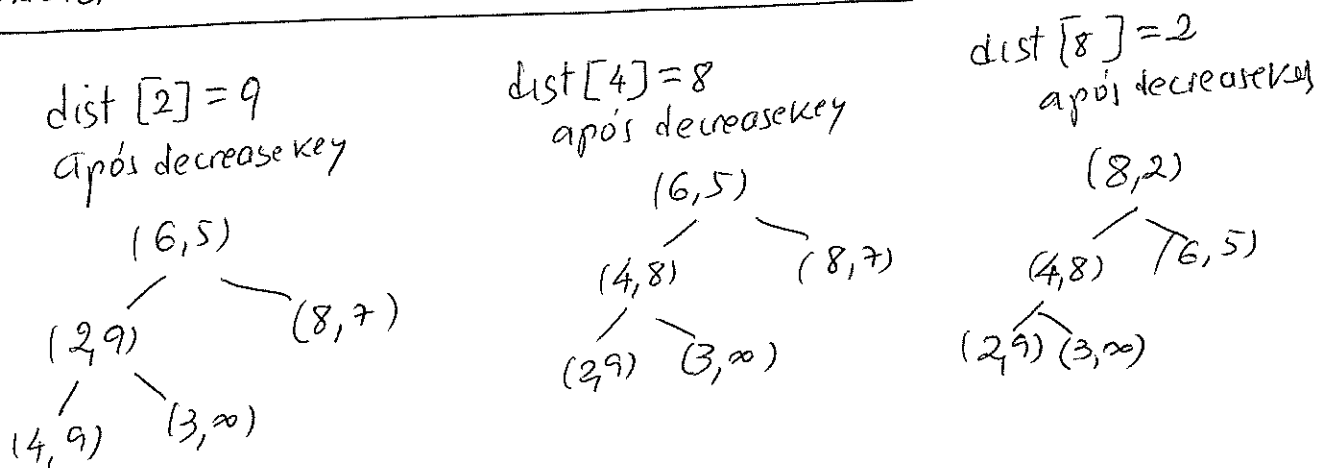 dist [2] = 9
após decreasekey
(6,5)
(2,9) (8,7)
(4,9) (3,∞)
dist [4] = 8
após decreasekey
(6,5)
(4,8) (8,7)
(2,9) (3,∞)
dist [8] = 2
após decreasekey
(8,2)
(4,8) (6,5)
(2,9) (3,∞)